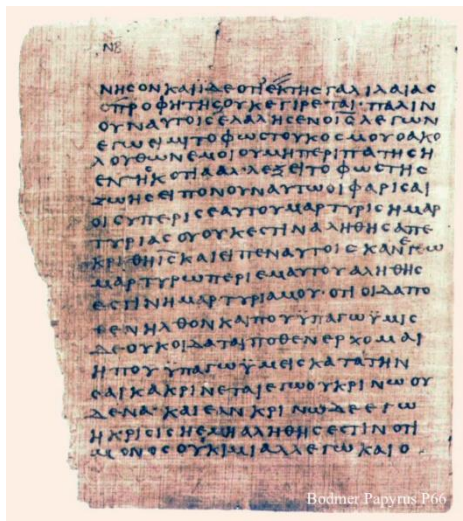 ΝΒ
ΝΗϹΟΝΚΑΙΪΔΕΟΤΙΕΚΤΗϹΓΑΛΙΛΑΙΑϹ
ΟΠΡΟΦΗΤΗϹΟΥΚΕΓΙΡΕΤΑΙ·ΠΑΛΙΝ
ΟΥΝΑΥΤΟΙϹΕΛΑΛΗϹΕΝΟΙϹΛΕΓΩΝ
ΕΓΩΕΙΜΙΤΟΦΩϹΤΟΥΚΟϹΜΟΥΟΑΚΟ
ΛΟΥΘΩΝΕΜΟΙΟΥΜΗΠΕΡΙΠΑΤΗϹΗ
ΕΝΤΗϹΚΟΤΙΑΑΛΛΕΞΕΙΤΟΦΩϹΤΗϹ
ΖΩΗϹΕΙΠΟΝΟΥΝΑΥΤΩΟΙΦΑΡΙϹΑΙ
ΟΙϹΥΠΕΡΙϹΕΑΥΤΟΥΜΑΡΤΥΡΙϹΗΜΑΡ
ΤΥΡΙΑϹΟΥΟΥΚΕϹΤΙΝΑΛΗΘΗϹΑΠΕ
ΚΡΙΘΗΙϹΚΑΙΕΙΠΕΝΑΥΤΟΙϹΚΑΝΕΓΩ
ΜΑΡΤΥΡΩΠΕΡΙΕΜΑΥΤΟΥΑΛΗΘΗϹ
ΕϹΤΙΝΗΜΑΡΤΥΡΙΑΜΟΥ·ΟΤΙΟΙΔΑΠΟ
ΘΕΝΗΛΘΟΝΚΑΙΠΟΥΫΠΑΓΩΫΜΙϹ
ΔΕΟΥΚΟΙΔΑΤΑΙΠΟΘΕΝΕΡΧΟΜΑΙ
ΗΠΟΥΫΠΑΓΩΫΜΕΙϹΚΑΤΑΤΗΝ
ϹΑΡΚΑΚΡΙΝΕΤΑΙΕΓΩΟΥΚΡΙΝΩΟΥ
ΔΕΝΑ·ΚΑΙΕΑΝΚΡΙΝΩΔΕΕΓΩ
ΗΚΡΙϹΙϹΗΕΜΗΑΛΗΘΗϹΕϹΤΙΝΟΤΙ
ΜΟΝΟϹΟΥΚΙΜΙΑΛΛΕΓΩΚΑΙΟ
Bodmer Papyrus P66